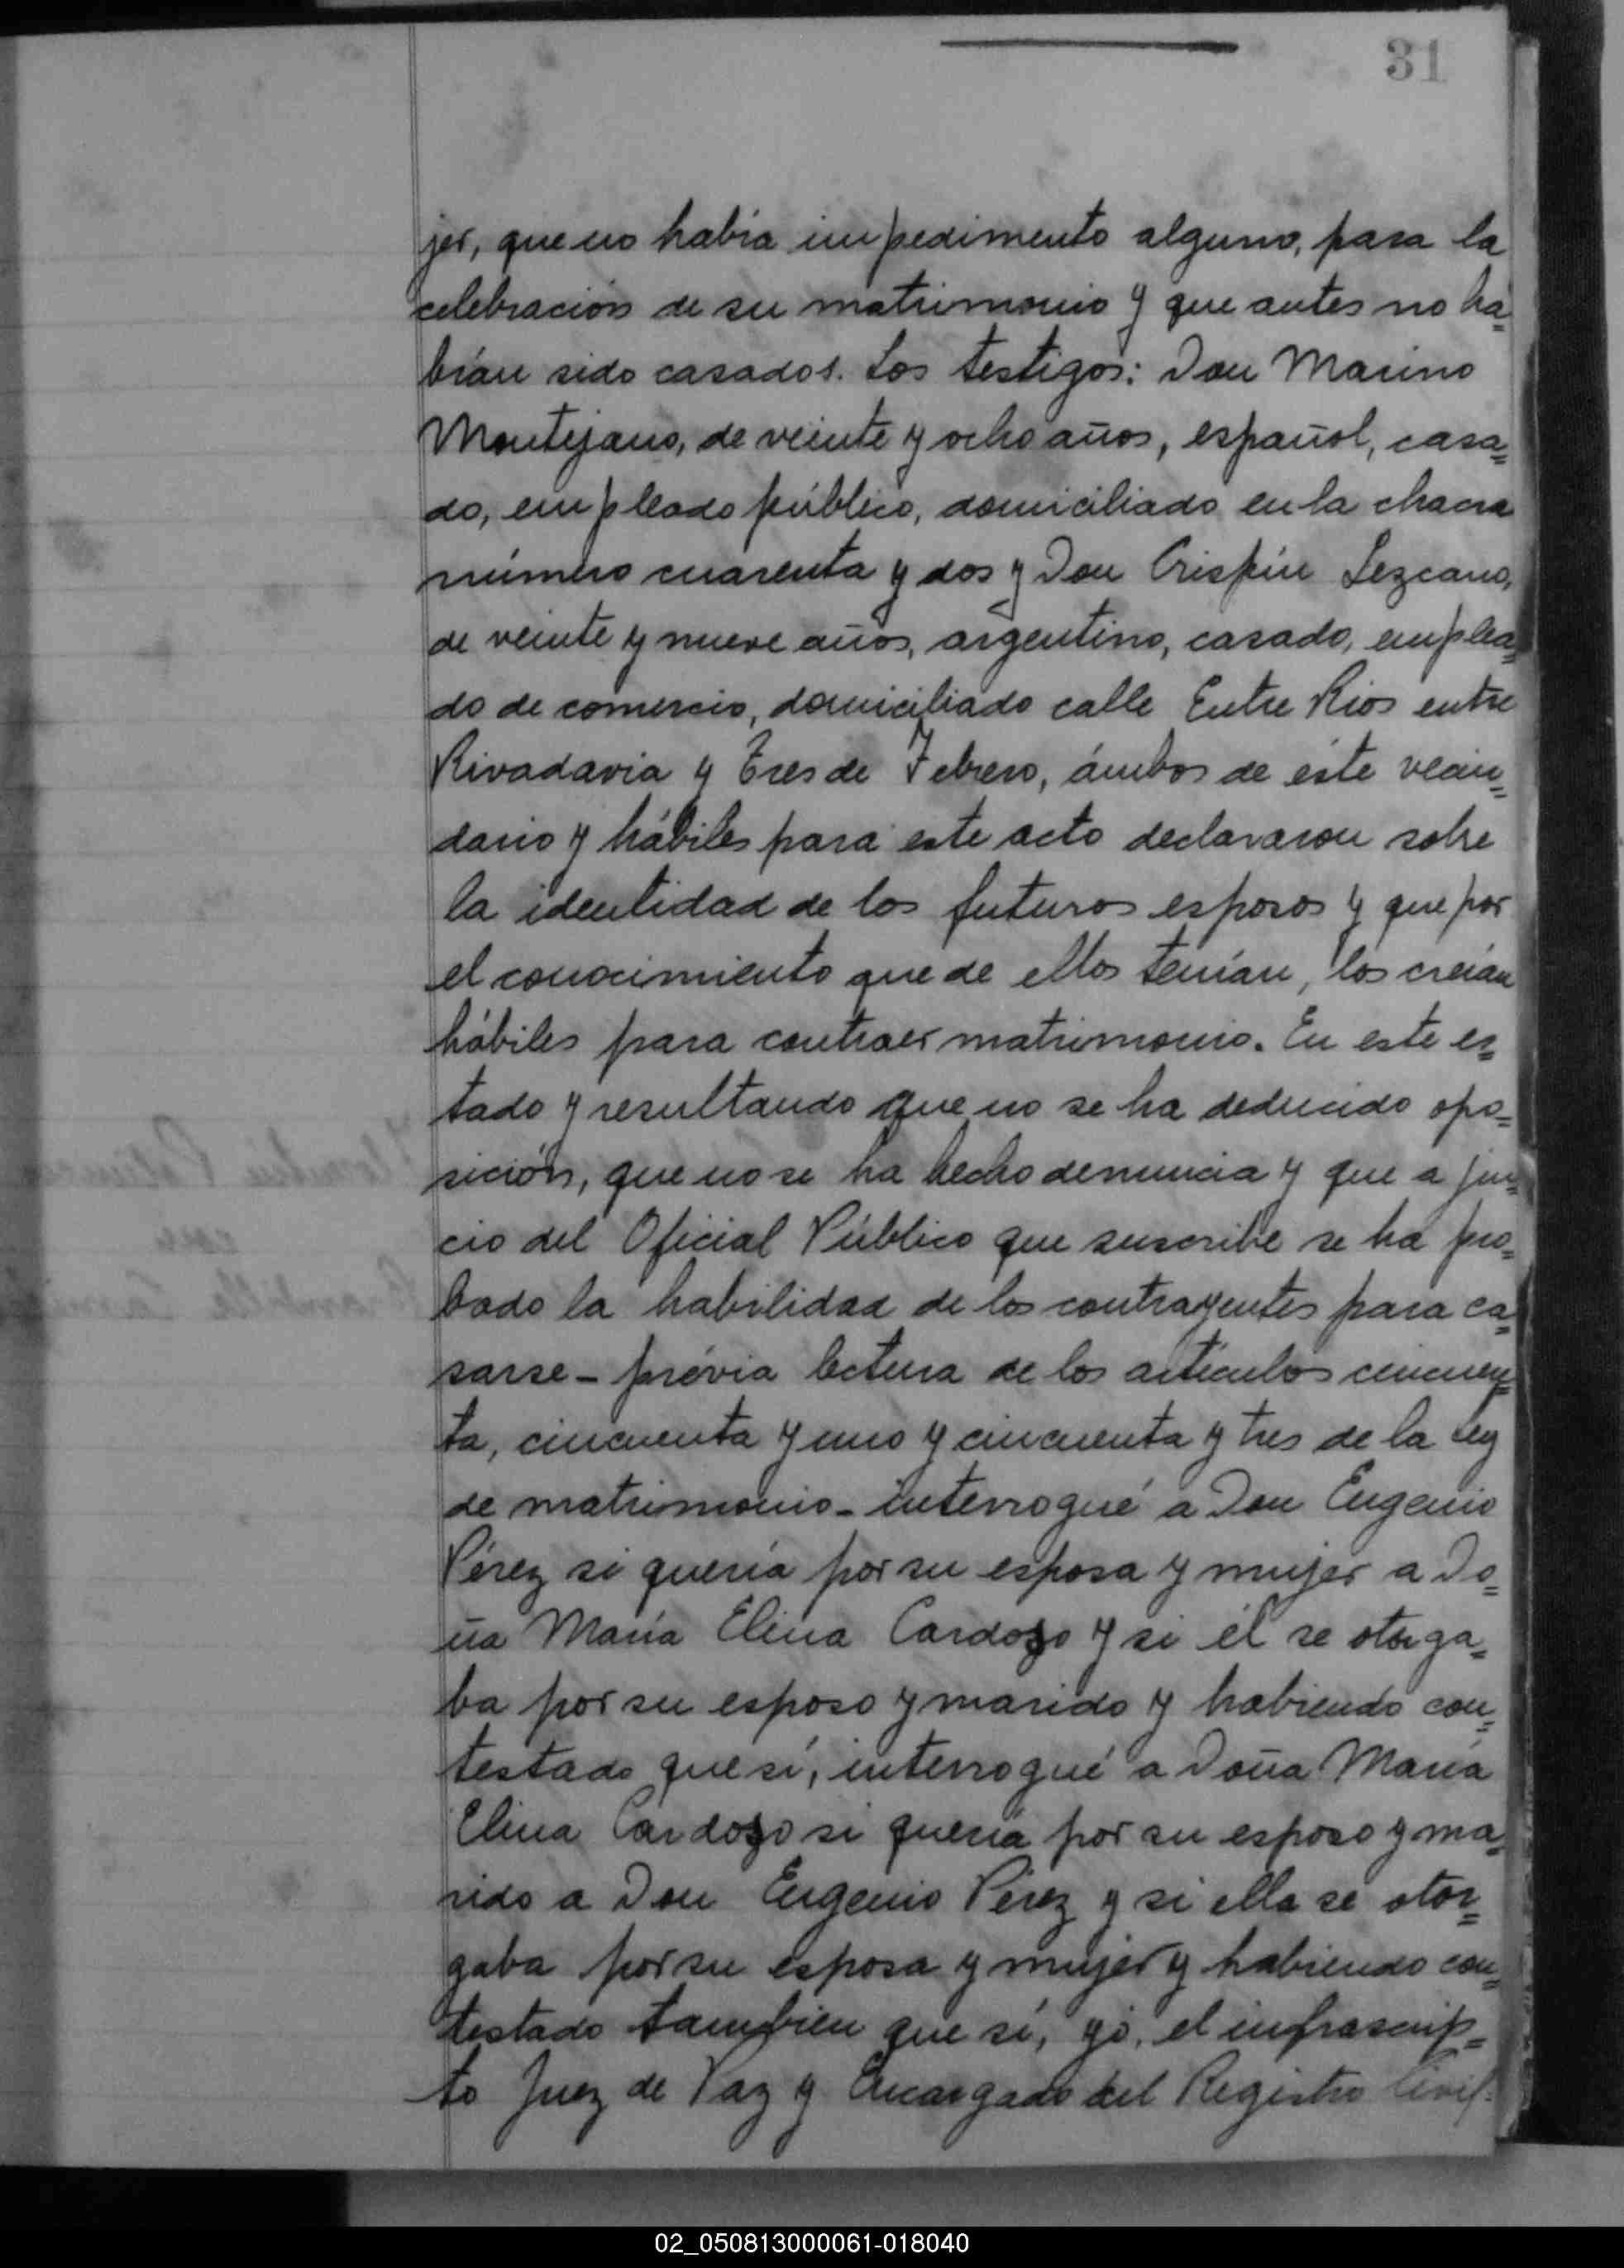 31
jer, que no había impedimento alguno, para la
celebración de su matrimonio y que antes no ha=
bían sido casados. Los testigos: Don Marino
Montejano, de veinte y ocho años, español, casa=
do, empleado público, domiciliado en la chacra
número cuarenta y dos y Don Crispín Lezcano,
de veinte y nueve años, argentino, casado, emplea=
do de comercio, domiciliado calle Entre Rios entre
Rivadavia y Tres de Febrero, ámbos de éste vecin=
dario y hábiles para este acto declararon sobre
la identidad de los futuros esposos y que por
el conocimiento que de ellos tenían, los creían
hábiles para contraer matrimonio. En este es=
tado y resultando que no se ha deducido opo=
sición, que no se ha hecho denuncia y que a jui=
cio del Oficial Público que suscribe se ha pro=
bado la habilidad de los contrayentes para ca=
sarse - prévia lectura de los artículos cincuen=
ta, cincuenta y uno y cincuenta y tres de la Ley
de matrimonio - interrogué a Don Eugenio
Pérez si quería por su esposa y mujer a Do=
ña María Elina Cardozo y si él se otorga=
ba por su esposo y marido y habiendo con=
testado que sí, interrogué a Doña María
Elina Cardozo si quería por su esposo y ma=
rido a Don Eugenio Pérez y si ella se otor=
gaba por su esposa y mujer y habiendo con=
testado tambien que sí, yó, el infrascrip=
to Juez de Paz y Encargado del Registro Civil.
02_050813000061-018040